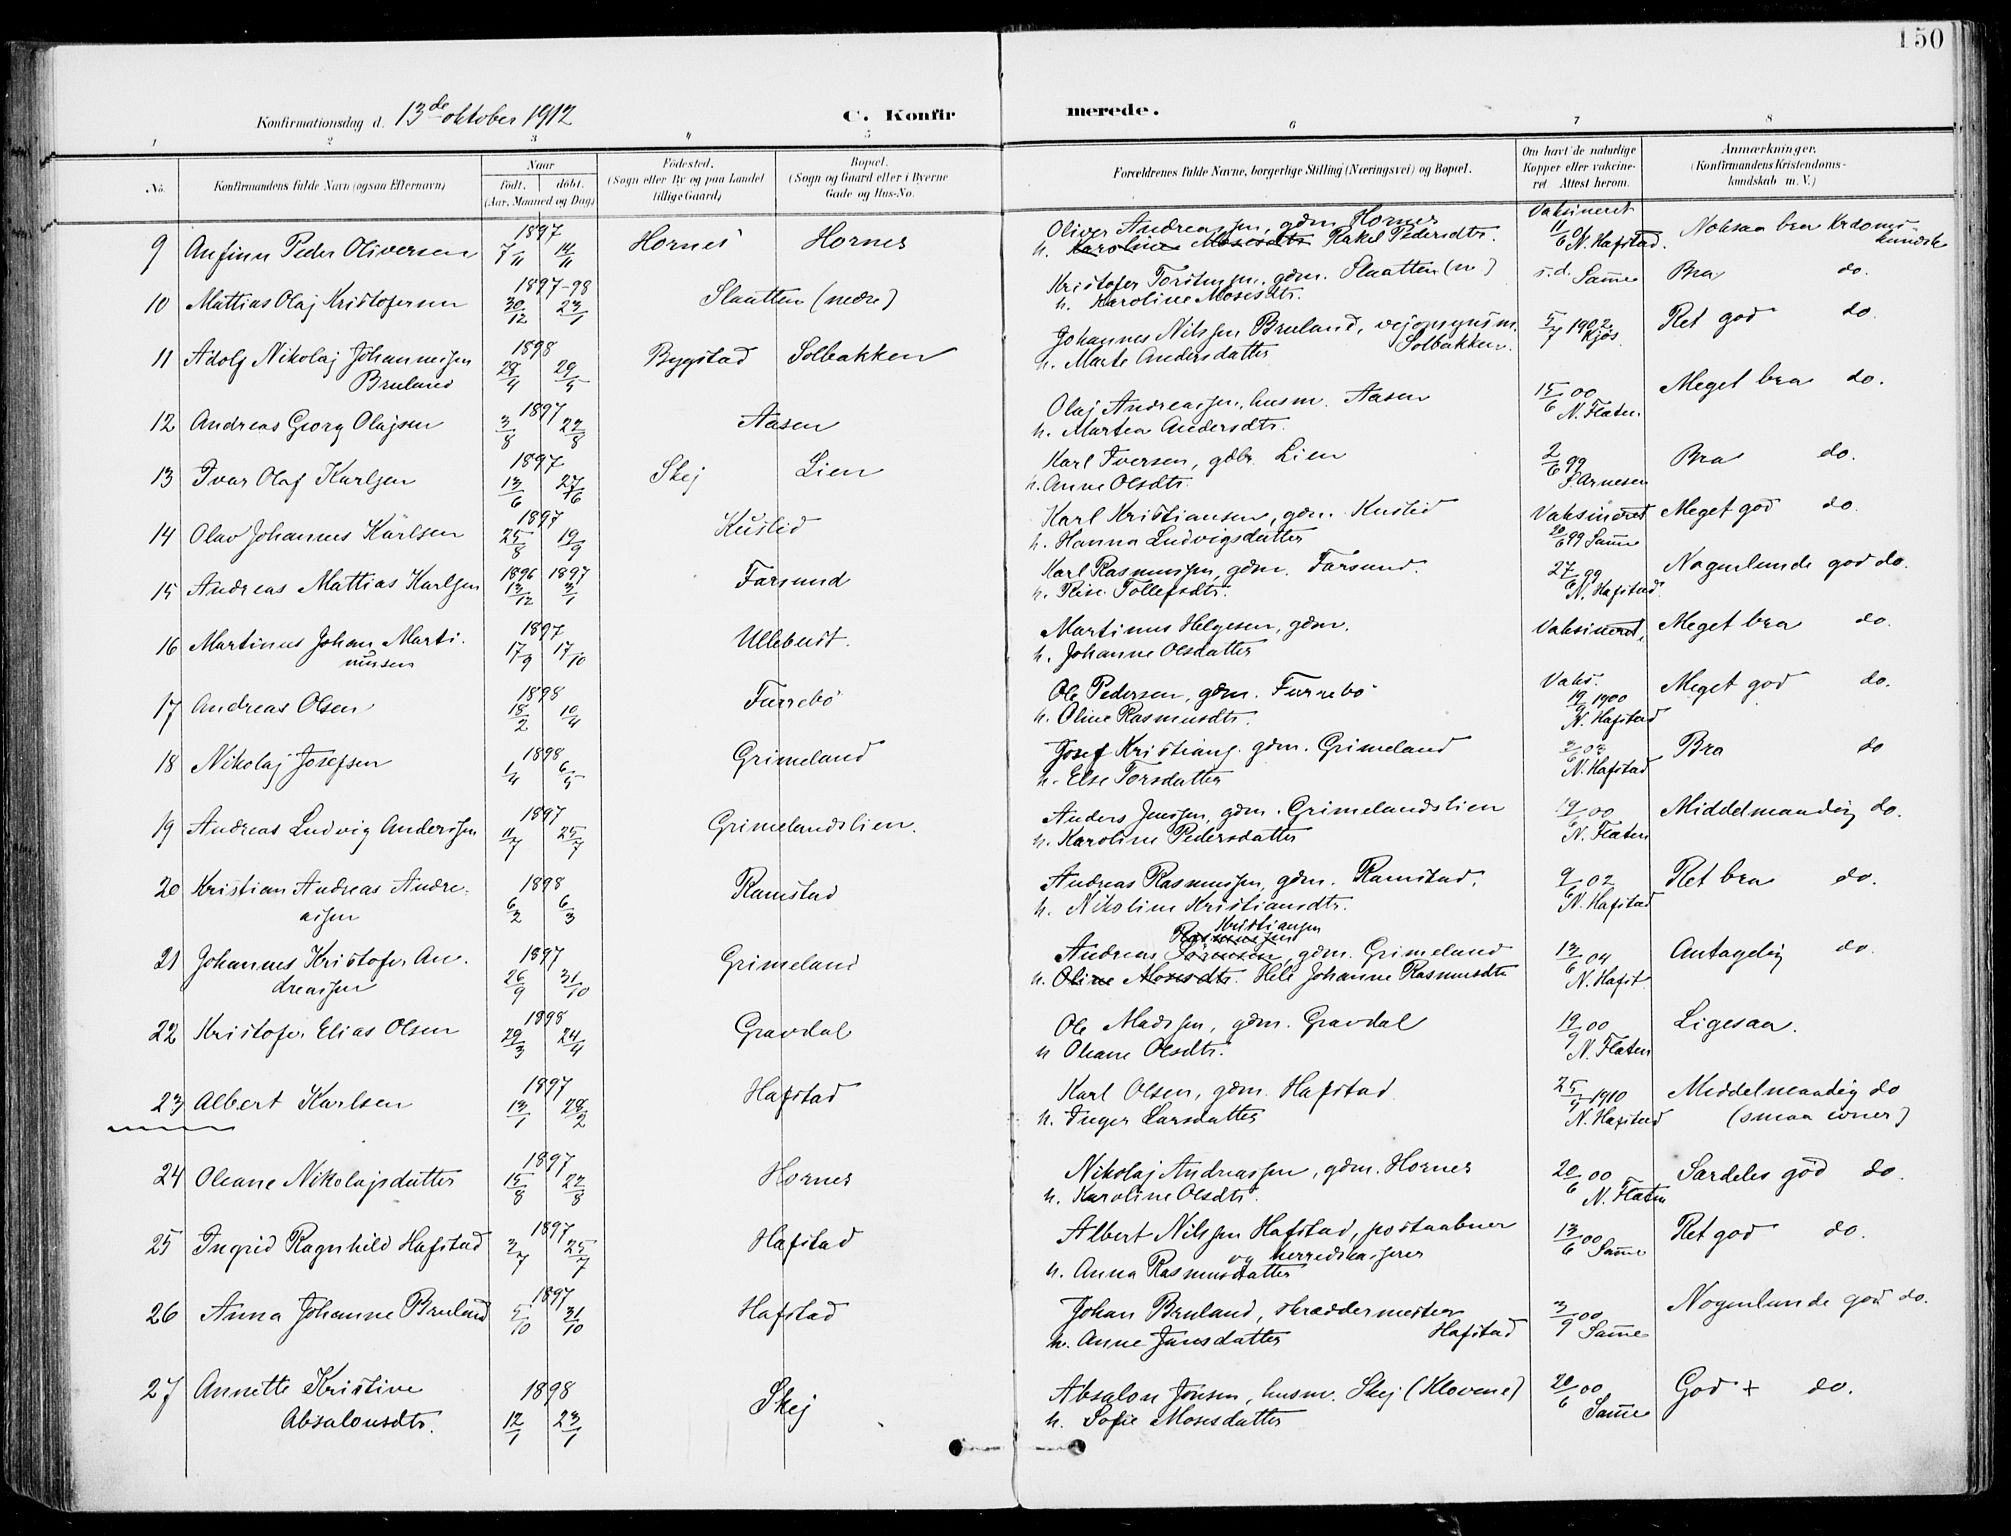 150
Konfirmationsdag d. 13de oktober 1912
C. Konfirmerede.
1 2 3 4 5 6 7 8
No. Konfirmandens fulde Navn (ogsaa Efternavn) Naar født. døbt. (Aar, Maaned og Dag) Fødested. (Sogn eller By og paa Landet tillige Gaard) Bopæl. (Sogn og Gaard eller i Byerne Gade og Hus-No. Forældrenes fulde Navne, borgerlige Stilling (Næringsvei) og Bopæl. Om havt de naturlige Kopper eller vakcineret. Attest herom. Anmærkninger. (Konfirmandens Kristendomskundskab m. V.)
9 Anfinn Peder Oliversen 1897 7/11 14/11 Hornes Hornes Oliver Andreassen, gdm. Hornes Vaksineret 11/6 01 N. Hafstad. Noksaa bra Krdomskundsk
h. Karoline Mosesdtr. Rakel Pedersdtr.
10 Mattias Olaj Kristofersen 1897-98 30/12 23/1 Slaatten (nedre) Kristofer Torstensen, gdm. Slaatten (n.) s.d. Samme Bra do.
h. Karoline Mosesdtr.
11 Adolf Nikolaj Johannessen 1898 28/4 29/5 Bygstad Solbakken Johannes Nilssen Bruland, vejopsynsm. 5/7 1902 Kjøs. Ret god do.
Bruland h. Marte Andersdatter Solbakken.
12 Andreas Georg Olajsen 1897 3/8 22/8 Aasen Olaj Andreassen, husm. Aasen 15/6 00 N. Flaten Meget bra do.
h. Martea Andersdtr.
13 Ivar Olaf Karlsen 1897 13/6 27/6 Skej Lien Karl Iversen, gdbr. Lien 2/6 99 J. Arnesen Bra do.
h. Anne Olsdtr.
14 Olav Johannes Karlsen 1897 25/8 19/9 Kuslid Karl Kristiansen, gdm. Kuslid Vaksineret 20/6 99 Samme Meget god do.
h. Hanna Ludvigsdatter
15 Andreas Mattias Karlsen 1896 1897 13/12 3/1 Farsund Karl Rasmussen, gdm. Farsund. 27/6 99 N. Hafstad. Nogenlunde god do.
h. Tollefsdtr.
16 Martinus Johan Marti- 1897 17/9 17/10 Ullebust. Martinus Helgesen, gdm. Vaksineret. Meget bra do.
nussen h. Johanne Olsdatter
17 Andreas Olsen 1898 18/2 10/4 Furrebø Ole Pedersen, gdm. Furrebø Vaks. 19/9 1900 N. Hafstad Meget god do.
h. Oline Rasmusdtr.
18 Nikolaj Josefsen 1898 1/4 6/5 Grimeland Josef Kristians. gdm. Grimeland 2/6 02 N. Hafstad Bra do
h. Else Torsdatter
19 Andreas Ludvig Anderssen 1897 11/7 25/7 Grimelandslien. Anders Jenssen, gdm. Grimelandslien 19/6 00 N. Flaten Middelmaadig do.
h. Karoline Pedersdatter
20 Kristian Andreas Andre- 1898 6/2 6/3 Ramstad Andreas Rasmussen, gdm. Ramstad. 9/6 02 N. Hafstad Ret bra do.
assen h. Nikoline Kristiansdtr.
Kristiansen
Rasmussen
21 Johannes Kristofer An- 1897 26/9 31/10 Grimeland Andreas Sørensen, gdm. Grimeland 13/6 04 N. Hafst. Antagelig do.
dreassen h. Oline Mosesdtr. Hele Johanne Rasmusdtr
22 Kristofer Elias Olsen 1898 29/3 24/4 Gravdal Ole Madssen, gdm. Gravdal 19/9 00 N. Flaten Ligesaa.
h Oleane Olsdtr.
23 Albert Karlsen 1897 13/1 28/2 Hafstad Karl Olsen, gdm. Hafstad 25/9 1910 N. Hafstad Middelmaadig do
h. Inger Larsdatter (smaa evner)
24 Oleane Nikolajsdatter 1897 15/8 22/8 Hornes Nikolaj Andreassen, gdm. Hornes 20/6 00 N. Flaten Særdeles god do.
h. Karoline Olsdtr.
25 Ingrid Ragnhild Hafstad 1897 2/7 25/7 Hafstad Albert Nilssen Hafstad, postaabner 13/6 00 Samme Ret god do.
og herredskasserer
h. Anna Rasmusdatter
26 Anna Johanne Bruland 1897 5/10 31/10 Hafstad Johan Bruland, skræddermester 3/9 00 Samme Nogenlunde god do.
h. Anne Jensdatter Hafstad
27 Annette Kristine 1898 12/1 23/1 Skej Absalon Jonsen, husm. Skej (Klovene) 20/6 00 Samme God + do.
Absalonsdtr. h. Sofie Mosesdatter